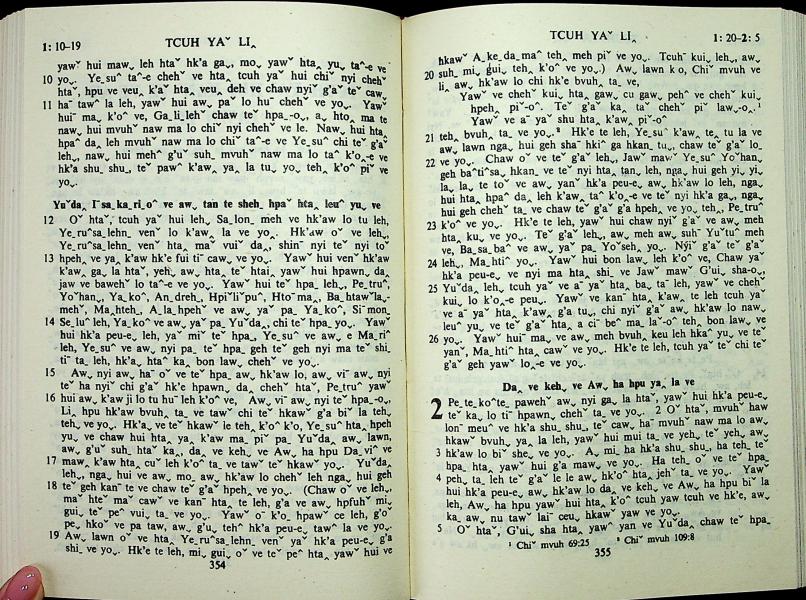 1: 10-19
TCUH YAˇ LI‸
yawˇ hui maw⌄ leh htaˇ hk'a ga⌄, mo⌄ yawˇ hta‸ yu⌄ taˆ-e ve
10 yo⌄. Ye_suˆ taˆ-e chehˇ ve hta‸ tcuh yaˇ hui chiˇ nyi chehˇ
htaˇ, hpu ve veu‸ k'aˇ hta‸ veu‸ deh ve chaw nyiˇ g'aˇ teˇ caw⌄
11 haˉ tawˆ la leh, yawˇ hui aw⌄ paˇ lo huˉ chehˇ ve yo⌄. Yawˇ
huiˉ ma⌄ k'oˆ ve, Ga_li_lehˇ chaw teˇ hpa_-o⌄, a⌄ hto‸ ma te
naw⌄ hui mvuhˇ naw ma lo chiˇ nyi chehˇ ve le. Naw⌄ hui hta‸
hpaˇ da⌄ leh mvuhˇ naw ma lo chiˇ taˆ-e ve Ye_suˆ chi teˇ g'aˇ
leh⌄, naw⌄ hui mehˇ g'uˇ suh_ mvuhˇ naw ma lo taˇ k'o‸-e ve
hk'a shu_ shu⌄, teˇ pawˇ k'aw‸ ya⌄ la tu⌄ yo⌄ teh‸ k'oˆ piˇ ve
yo⌄.
Yuˇda‸ Iˉsa_ka_ri_oˆ ve aw⌄ tan te sheh_ hpaˇ hta‸ leuˆ yu⌄ ve
12 Oˇ htaˇ, tcuh yaˇ hui leh⌄ Sa_lon_ meh ve hk'aw lo tu leh,
Ye_ruˇsa_lehn_ venˇ lo k'aw‸ la ve yo⌄. Hk'aw oˇ ve leh⌄
Ye_ruˇsa_lehn_ venˇ hta‸ maˇ vuiˇ da⌄, shinˉ nyi te nyi toˇ
13 hpeh⌄ ve ya‸ k'aw hk'e fui tiˉ caw⌄ ve yo⌄. Yawˇ hui venˇ hk'aw
k'aw‸ ga⌄ la htaˇ, yeh⌄ aw⌄ hta‸ teˇ htai⌄ yawˇ hui hpawn⌄ da‸
jaw ve bawehˇ lo taˆ-e ve yo⌄. Yawˇ hui teˇ hpa_ leh⌄, Pe_truˆ,
Yoˇhan⌄, Ya_koˆ, An_dreh_, Hpiˇliˇpuˆ, Htoˉma_, Ba_htawˇla_-
mehˇ, Ma_hteh_, A_la_hpehˇ ve aw⌄ yaˇ pa_ Ya_koˆ, Siˇmon_
14 Se_luˆ leh, Ya_koˆ ve aw⌄ yaˇ pa_ Yuˇda‸, chi teˇ hpa_ yo⌄. Yawˇ
hui hk'a peu-e⌄ leh, yaˇ miˇ teˇ hpa_, Ye_suˆ ve aw⌄ e Ma_riˆ
leh, Ye_suˆ ve aw⌄ nyi pa_ teˇ hpa_ geh teˇ geh nyi ma teˇ shi_
tiˉ ta_ leh, hk'a_ hta‸ ka_ bon law⌄ chehˇ ve yo⌄.
15 Aw⌄ nyi aw⌄ haˉ oˇ ve teˇ hpa_ aw⌄ hk'aw lo, aw⌄ viˇ aw⌄ nyi
teˇ ha nyiˇ chi g'aˇ hk'e hpawn⌄ da‸ chehˇ htaˇ, Pe_truˆ yawˇ
16 hui aw⌄ k'aw ji lo tu huˉ leh k'oˆ ve, Aw⌄ viˇ aw⌄ nyi teˇ hpa_-o⌄,
Li‸ hpu hk'aw bvuh‸ ta⌄ ve tawˇ chi teˇ hkawˇ g'a biˇ la teh⌄
teh⌄ ve yo⌄. Hk'a⌄ ve teˇ hkawˇ le teh‸ k'oˆ k'o, Ye_suˆ hta‸ hpeh
yu⌄ ve chaw hui hta‸ ya‸ k'aw ma_ piˇ pa_ Yuˇda‸ aw⌄ lawn⌄
aw⌄ g'uˇ suh_ htaˇ ka‸, da‸ ve keh⌄ ve Aw⌄ ha hpu Da_viˆ ve
17 maw‸ k'aw hta‸ cuˇ leh k'oˆ ta⌄ ve tawˇ teˇ hkawˇ yo⌄. Yuˇda‸
leh⌄, nga⌄ hui ve aw⌄ mo⌄ aw⌄ hk'aw lo chehˇ leh nga⌄ hui geh
18 teˇ geh kanˉ te ve chaw teˇ g'aˇ hpeh⌄ ve yo⌄. (Chaw oˇ ve leh⌄,
maˇ hteˇ maˇ cawˇ ve kanˉ hta‸ te leh, g'a ve aw⌄ hpfuhˇ mi⌄
gui⌄ teˇ peˆ vui⌄ ta⌄ ve yo⌄. Yawˇ oˇ k'o_ hpawˇ ce leh, g'oˇ
pe⌄ hkoˇ ve pa taw, aw⌄ g'u⌄ teh‸ hk'a peu-e⌄ tawˆ la ve yo⌄.
19 Aw⌄ lawn oˇ ve hta‸ Ye_ruˇsa_lehn_ venˇ yaˇ hk'a peu-e⌄ g'a
shi_ ve yo⌄. Hk'e te leh, mi⌄ gui⌄ oˇ ve te peˆ hta‸ yawˇ hui ve
354
TCUH YAˇ LI‸
1: 20-2: 5
hkawˇ A_ke_da_maˆ teh‸ meh piˇ ve yo⌄. Tcuhˉ kui⌄ leh⌄, aw⌄
20 suh_ mi⌄ gui⌄ teh‸ k'oˆ ve yo⌄.) Aw⌄ lawn k o, Chiˇ mvuh ve
li‸ aw⌄ hk'aw lo chi hk'e bvuh‸ ta⌄ ve,
Yawˇ ve chehˇ kui⌄ hta‸ gaw⌄ cu gaw⌄ pehˆ ve chehˇ kui⌄
hpeh‸ piˇ-oˆ. Teˇ g'aˇ ka‸ taˇ chehˇ piˇ law⌄-o⌄.¹
Yawˇ ve aˉ yaˇ shu hta‸ k'aw‸ piˇ-oˇ
21 teh‸ bvuh‸ ta⌄ ve yo⌄.² Hk'e te leh, Ye_suˆ k'aw‸ te‸ tu la ve
aw⌄ lawn nga⌄ hui geh shaˉ hkiˉ ga hkan_ tu⌄, chaw teˇ g'aˇ lo_
22 ve yo⌄. Chaw oˇ ve teˇ g'aˇ leh⌄, Jawˇ mawˇ Ye_suˆ Yoˇhan⌄
geh baˉtiˇsa⌄ hkan_ ve teˇ nyi hta‸ tan_ leh, nga⌄ hui geh yi⌄ yi⌄
la⌄ la⌄ te to ve aw⌄ yanˇ hk'a peu-e⌄ aw⌄ hk'aw lo leh, nga⌄
hui hta‸ hpaˇ da⌄ leh k'aw‸ taˆ k'o‸-e ve teˇ nyi hk'a ga⌄, nga⌄
hui geh chehˇ ta⌄ ve chaw teˇ g'aˇ g'a hpeh⌄ ve yo⌄ teh‸, Pe_truˆ
23 k'oˆ ve yo⌄. Hk'e te leh, yawˇ hui chaw nyiˇ g'aˇ ve aw⌄ meh
hta‸ ku⌄ ve yo⌄. Teˇ g'aˇ leh⌄, aw⌄ meh aw⌄ suhˇ Yuˇtuˆ meh
ve, Ba_sa_baˆ ve aw⌄ yaˇ pa_ Yoˇseh⌄ yo⌄. Nyiˇ g'aˇ teˇ g'aˇ
24 leh⌄, Ma_htiˆ yo⌄. Yawˇ hui bon law⌄ leh k'oˆ ve, Chaw yaˇ
hk'a peu-e⌄ ve nyi ma hta‸ shi_ ve Jawˇ mawˇ G'ui⌄ sha-o⌄,
25 Yuˇda‸ leh⌄ tcuh yaˇ ve aˉ yaˇ hta‸ ba⌄ taˉ leh, yawˇ ve chehˇ
kui⌄ lo k'o‸-e peu⌄. Yawˇ ve kanˉ hta‸ k'aw‸ te leh tcuh yaˇ
ve aˉ yaˇ hta‸ k'aw‸ g'a tu⌄, chi nyiˇ g'aˇ aw⌄ hk'aw lo naw⌄
leuˆ yu⌄ ve teˇ g'aˇ hta‸ a ciˉ beˇ ma_ laˇ-oˆ teh‸ bon law⌄ ve
26 yo⌄. Yawˇ huiˉ ma⌄ ve aw⌄ meh bvuh⌄ keu leh hkaˇ yu⌄ ve teˇ
yanˇ, Ma_htiˆ hta‸ caw⌄ ve yo⌄. Hk'e te leh, tcuh yaˇ te chi teˇ
g'aˇ geh yawˇ lo‸-e ve yo⌄.
Da‸ ve keh⌄ ve Aw⌄ ha hpu ya‸ la ve
2 Pe_te_koˆte_ pawehˇ aw⌄ nyi ga‸ la htaˇ, yawˇ hui hk'a peu-e⌄
teˇ ka⌄ lo tiˉ hpawn⌄ chehˇ ta⌄ ve yo⌄. 2 Oˇ htaˇ, mvuhˇ haw
lonˉ meuˆ ve hk'a shu_ shu⌄, teˇ caw⌄ haˉ mvuhˇ naw ma lo aw⌄
hkawˇ bvuh⌄ ya‸ la leh, yawˇ hui mui ta⌄ ve yeh⌄ teˇ yeh⌄ aw⌄
3 hk'aw lo biˇ she⌄ ve yo⌄. A⌄ mi⌄ ha hk'a shu_ shu⌄, ha teh_ teˇ
hpa_ hta‸ yawˇ hui g'a maw⌄ ve yo⌄. Ha teh_ oˇ ve teˇ hpa_
4 peh⌄ ta⌄ leh teˇ g'aˇ le le aw⌄ hk'oˆ hta‸ jehˇ ta⌄ ve yo⌄. Yawˇ
hui hk'a peu-e⌄ aw⌄ hk'aw lo da‸ ve keh⌄ ve Aw⌄ ha hpu biˇ la
leh, Aw⌄ ha hpu yawˇ hui hta‸ k'oˆ tcuh yaw tcuh ve hk'e, aw⌄
ka_ aw⌄ nu tawˇ laiˉ ceu⌄ hkawˇ yaw ve yo⌄.
5 Oˇ htaˇ, G'ui⌄ sha hta‸ yawˆ yan ve Yuˇda‸ chaw teˇ hpa_
¹ Chiˇ mvuh 69:25 ² Chiˇ mvuh 109:8
355